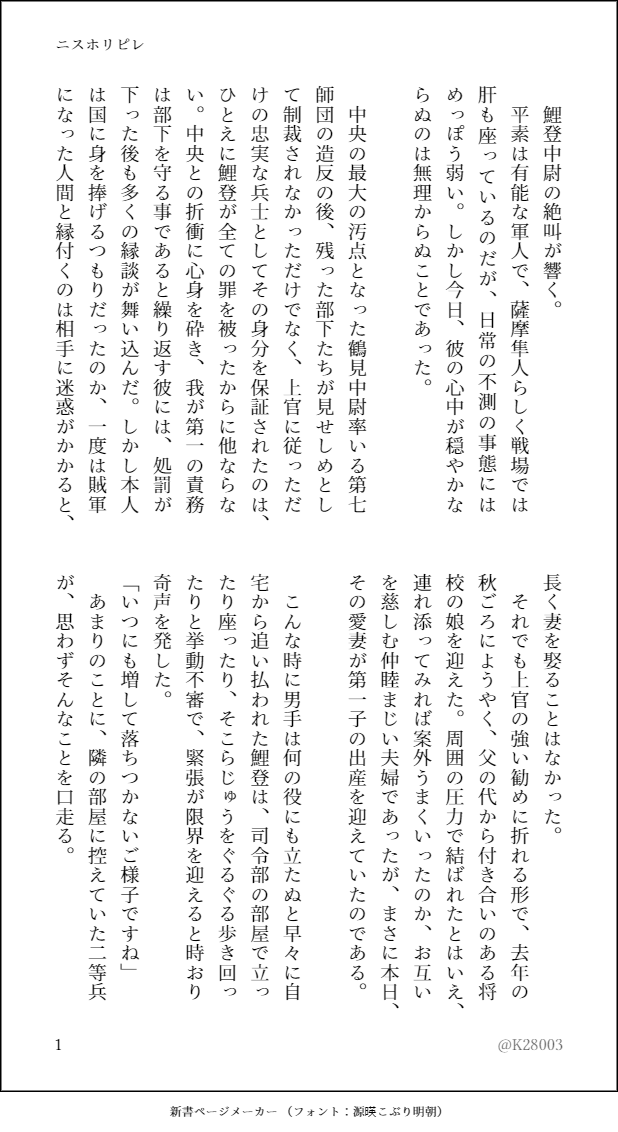 ニスホリピレ
鯉登中尉の絶叫が響く。
平素は有能な軍人で、薩摩隼人らしく戦場では
肝も座っているのだが、日常の不測の事態には
めっぽう弱い。しかし今日、彼の心中が穏やかな
らぬのは無理からぬことであった。
中央の最大の汚点となった鶴見中尉率いる第七
師団の造反の後、残った部下たちが見せしめとし
て制裁されなかっただけでなく、上官に従っただ
けの忠実な兵士としてその身分を保証されたのは、
ひとえに鯉登が全ての罪を被ったからに他ならな
い。中央との折衝に心身を砕き、我が第一の責務
は部下を守る事であると繰り返す彼には、処罰が
下った後も多くの縁談が舞い込んだ。しかし本人
は国に身を捧げるつもりだったのか、一度は賊軍
になった人間と縁付くのは相手に迷惑がかかると、
長く妻を娶ることはなかった。
それでも上官の強い勧めに折れる形で、去年の
秋ごろにようやく、父の代から付き合いのある将
校の娘を迎えた。周囲の圧力で結ばれたとはいえ、
連れ添ってみれば案外うまくいったのか、お互い
を慈しむ仲睦まじい夫婦であったが、まさに本日、
その愛妻が第一子の出産を迎えていたのである。
こんな時に男手は何の役にも立たぬと早々に自
宅から追い払われた鯉登は、司令部の部屋で立っ
たり座ったり、そこらじゅうをぐるぐる歩き回っ
たりと挙動不審で、緊張が限界を迎えると時おり
奇声を発した。
「いつにも増して落ちつかないご様子ですね」
あまりのことに、隣の部屋に控えていた二等兵
が、思わずそんなことを口走る。
1
@K28003
新書ページメーカー（フォント：源暎こぶり明朝）